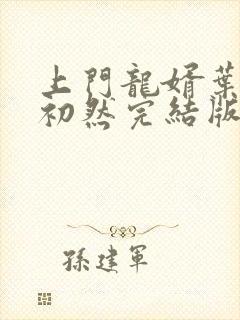 上門龍婿葉
初然完結版
孫建軍